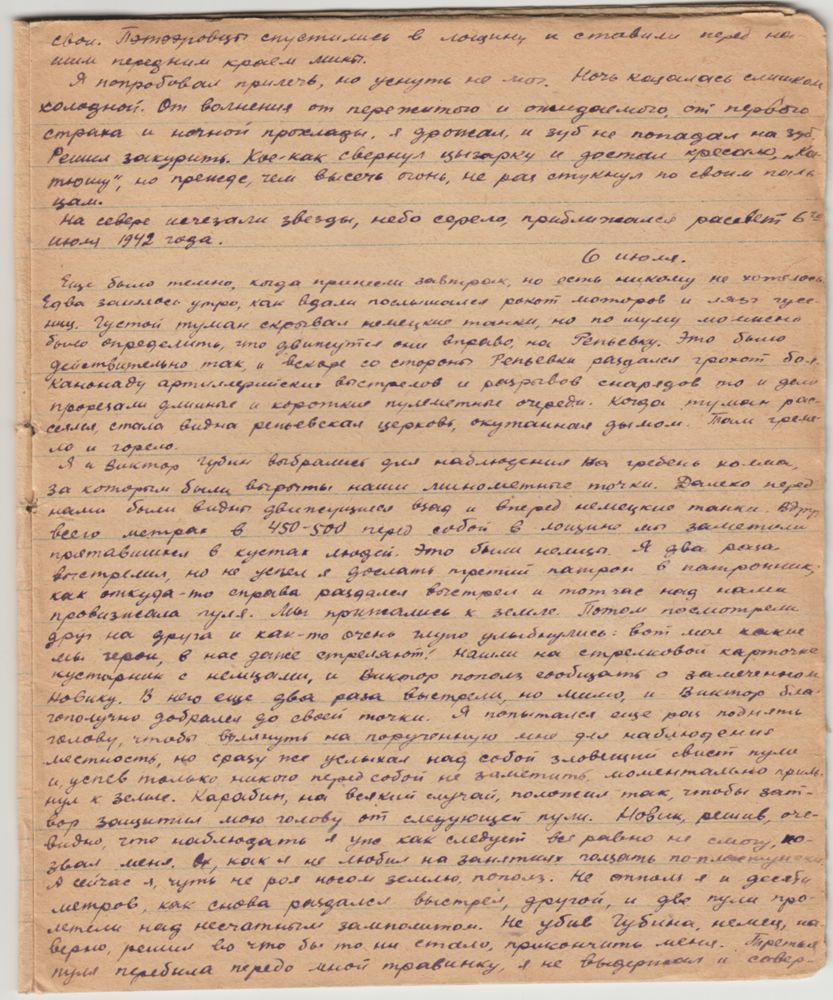 свои. Пэтээровцы спустились в лощину и ставили перед на-
шим передним краем мины.
Я попробовал прилечь, но уснуть не мог. Ночь казалась слишком
холодной. От волнения от пережитого и ожидаемого, от первого
страха и ночной прохлады, я дрожал, и зуб не попадал на зуб.
Решил закурить. Кое-как свернул цыгарку и достал кресало, „Ка-
тюшу", но прежде, чем высечь огонь, не раз стукнул по своим паль-
цам.
На севере исчезали звезды, небо серело, приближался рассвет 6го
июля 1942 года.
6 июля.
Еще было темно, когда принесли завтрак, но есть никому не хотелось.
Едва занялось утро, как вдали послышался рокот моторов и лязг гусе-
ниц. Густой туман скрывал немецкие танки, но по шуму можно
было определить, что движутся они вправо, на Репьевку. Это было
действительно так, и вскоре со стороны Репьевки раздался грохот боя.
Канонаду артиллерийских выстрелов и разрывов снарядов то и дело
прорезали длинные и короткие пулеметные очереди. Когда туман рас-
сеялся, стала видна репьевская церковь, окутанная дымом. Там греме-
ло и горело.
Я и Виктор Губин выбрались для наблюдения на гребень холма,
за которым были вырыты наши минометные точки. Далеко перед
нами были видны движущиеся взад и вперед немецкие танки. Вдруг
всего метрах в 450-500 перед собой в лощине мы заметили
прятавшихся в кустах людей. Это были немцы. Я два раза
выстрелил, но не успел я дослать третий патрон в патронник,
как откуда-то справа раздался выстрел и тотчас над нами
провизжала пуля. Мы прижались к земле. Потом посмотрели
друг на друга и как-то очень глупо улыбнулись: вот мол какие
мы герои, в нас даже стреляют! Нашли на стрелковой карточке
кустарник с немцами, и Виктор пополз сообщать о замеченном
Новику. В него еще два раза выстрели, но мимо, и Виктор бла-
гополучно добрался до своей точки. Я попытался еще раз поднять
голову, чтобы взглянуть на порученную мне для наблюдения
местность, но сразу же услыхал над собой зловещий свист пули
и, успев только никого перед собой не заметить, моментально приль-
нул к земле. Карабин, на всякий случай, положил так, чтобы зат-
вор защитил мою голову от следующей пули. Новик, решив, оче-
видно, что наблюдать я уже как следует все равно не смогу, по-
звал меня. Ох, как я не любил на занятиях ползать по-пластунски.
А сейчас я, чуть не роя носом землю, пополз. Не отполз я и десяти
метров, как снова раздался выстрел, другой, и две пули про-
летели над несчастным замполитом. Не убив Губина, немец, на-
верно, решил во что бы то ни стало, прикончить меня. Третья
пуля перебила передо мной травинку, я не выдержал и совер-